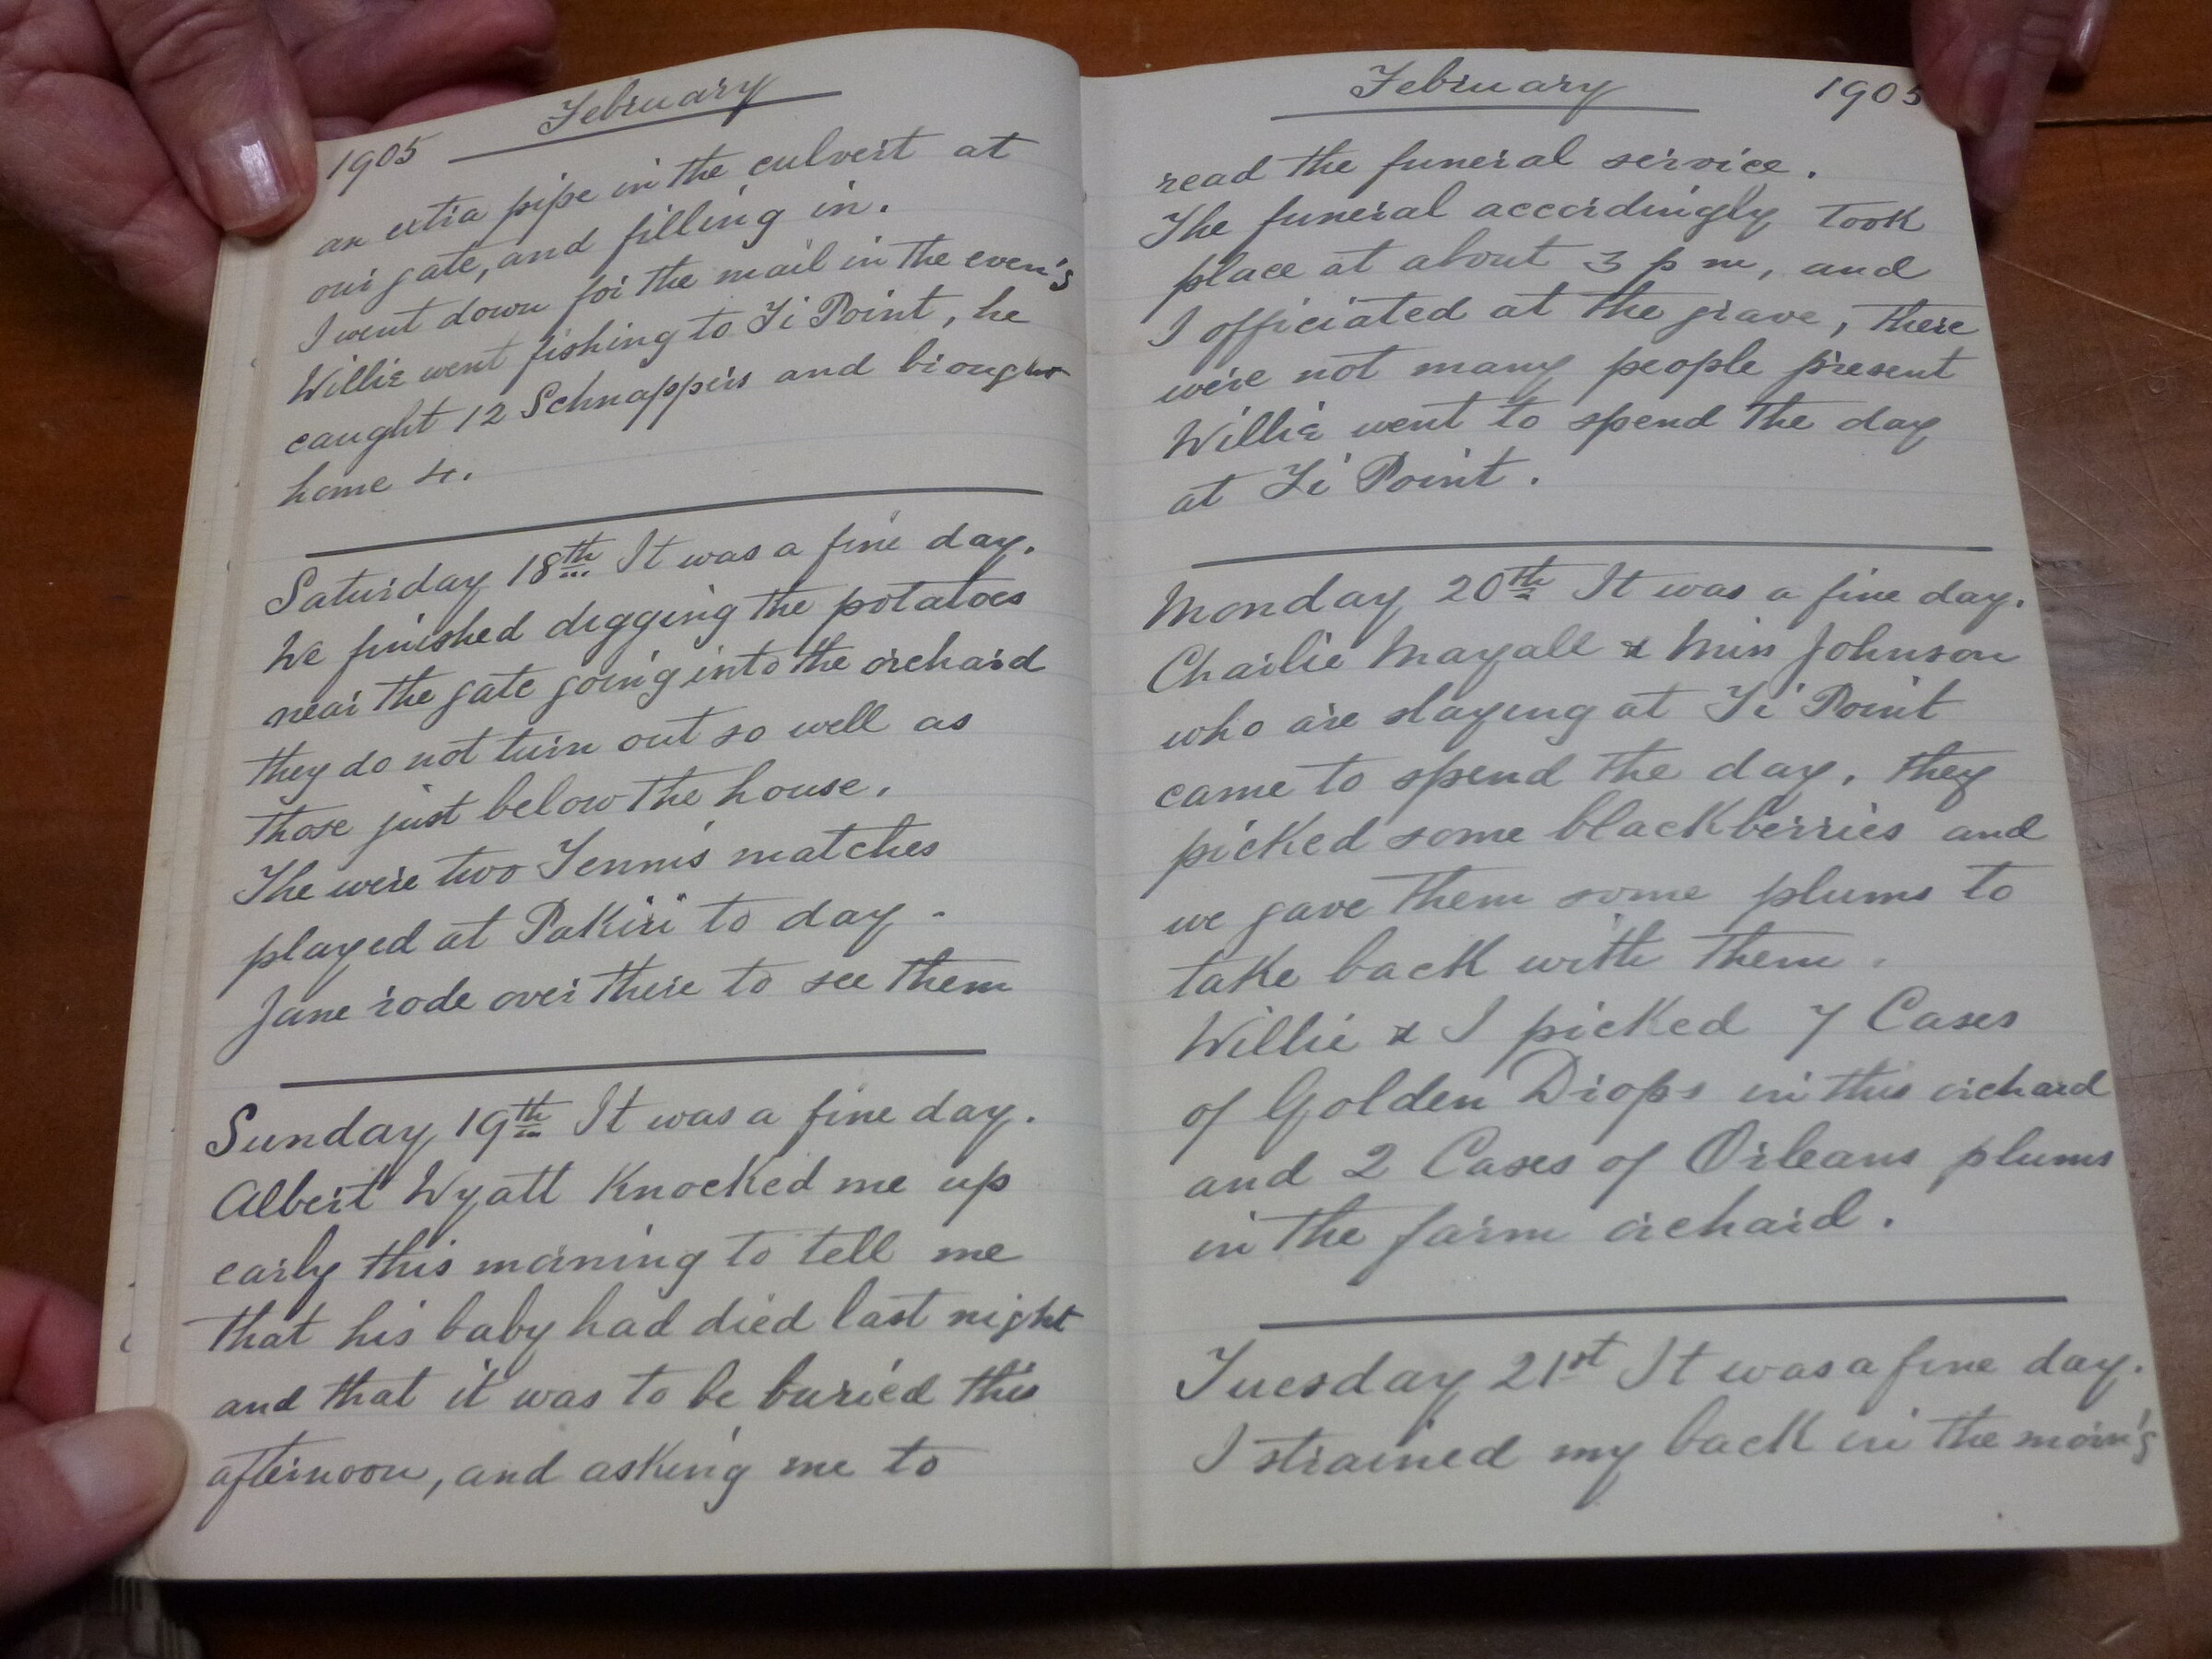 1905 February
an extra pipe in the culvert at
our gate, and filling in.
I went down for the mail in the even'g
Willie went fishing to Ti Point, he
caught 12 Schnappers and brought
home 4.
Saturday 18th It was a fine day.
We finished digging the potatoes
near the gate going into the orchard
they do not turn out so well as
those just below the house.
The were two Tennis matches
played at Pakiri to day.
Jane rode over there to see them
Sunday 19th It was a fine day.
Albert Wyatt knocked me up
early this morning to tell me
that his baby had died last night
and that it was to be buried this
afternoon, and asking me to
February 1905
read the funeral service.
The funeral accordingly took
place at about 3 p m, and
I officiated at the grave, there
were not many people present
Willie went to spend the day
at Ti Point.
Monday 20th It was a fine day.
Charlie Mayall & Miss Johnson
who are staying at Ti Point
came to spend the day, they
picked some blackberries and
we gave them some plums to
take back with them.
Willie & I picked 7 Cases
of Golden Drops in this orchard
and 2 Cases of Orleans plums
in the farm orchard.
Tuesday 21st It was a fine day.
I strained my back in the morn'g